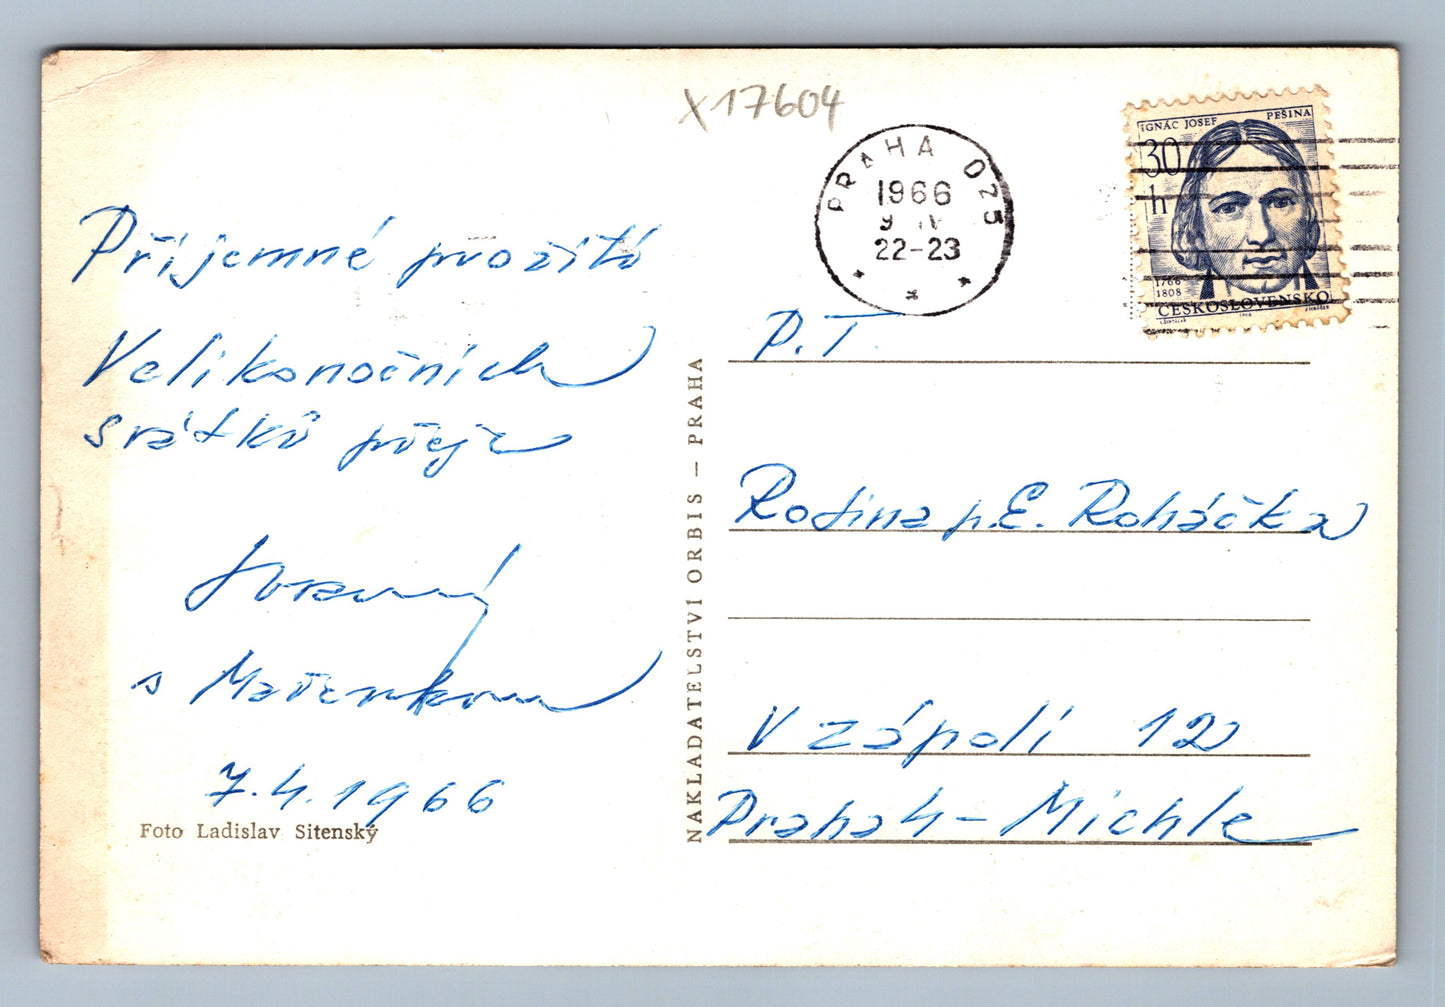 X17604
PRAHA 025
1966
9 IV
22-23
IGNÁC JOSEF PEŠINA
30
h
1766
1808
ČESKOSLOVENSKO
Příjemné prožití
Velikonočních
svátků přeje
s Mařenkou
7.4.1966
Foto Ladislav Sitenský
NAKLADATELSTVÍ ORBIS — PRAHA
P.T.
Rodina p. E. Roháčka
V zápolí 12
Praha 4 - Michle